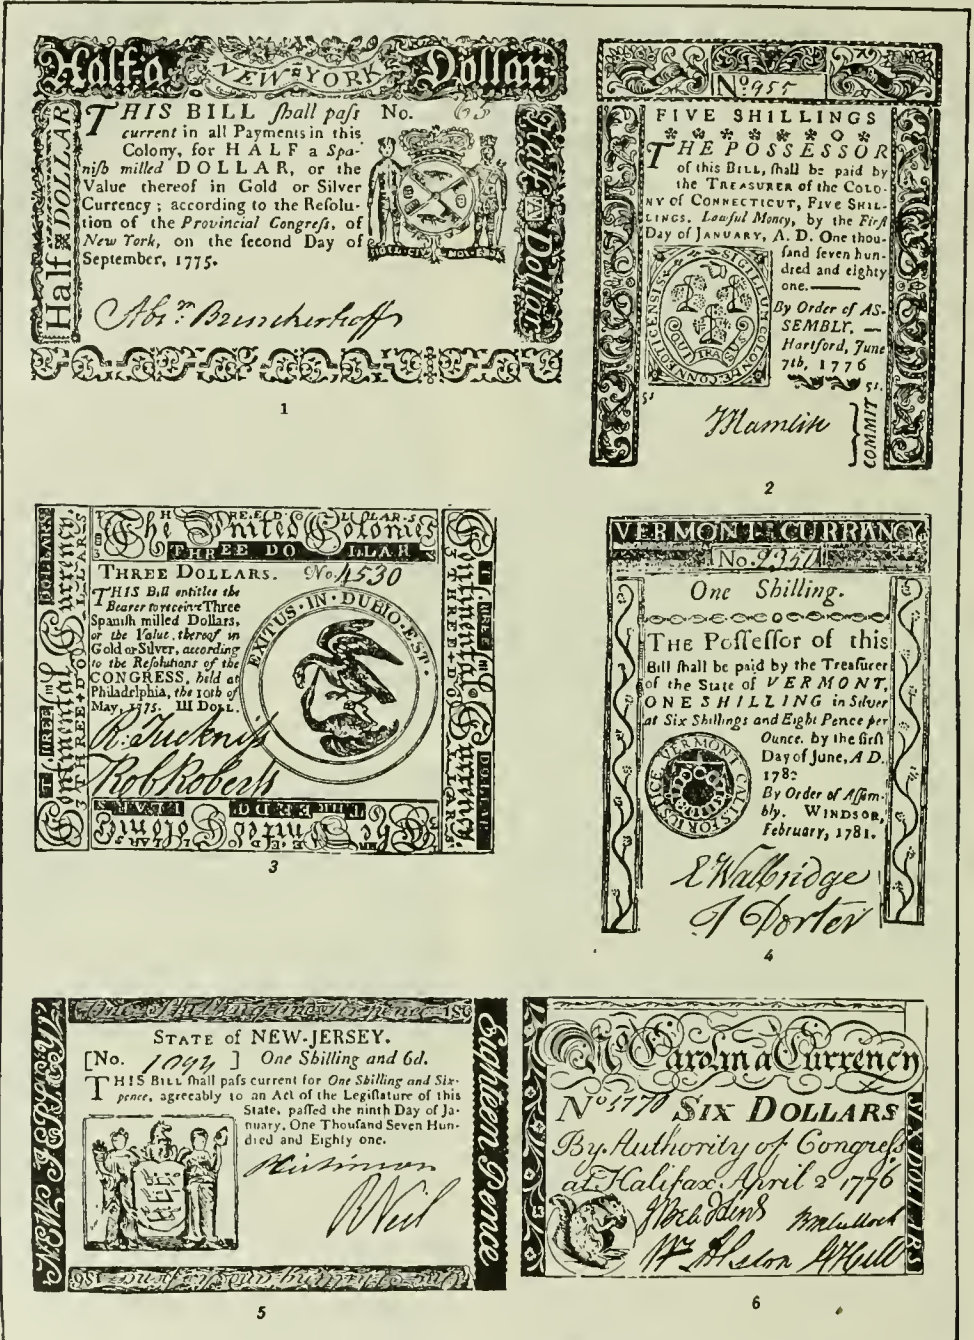 Half a NEW-YORK Dollar.
THIS BILL ſhall paſs No. 63
current in all Payments in this
Colony, for HALF a Spa-
niſh milled DOLLAR, or the
Value thereof in Gold or Silver
Currency ; according to the Reſolu-
tion of the Provincial Congreſs, of
New York, on the ſecond Day of
September, 1775.
Half DOLLAR
Half a Dollar
Abrm. Brinckerhoff
1
No. 955
FIVE SHILLINGS
THE POSSESSOR
of this BILL, ſhall be paid by
the TREASURER of the COLO-
NY of CONNECTICUT, FIVE SHIL-
LINGS. Lawful Money, by the Firſt
Day of JANUARY, A. D. One thou-
ſand ſeven hun-
dred and eighty
one.
By Order of AS-
SEMBLY. —
Hartford, June
7th, 1776
5s.
5s
SIGILLUM COLONIÆ CONNECTICENSIS
COMMIT
2
The United Colonies
THREE DOLLAR
THREE DOLLARS. No. 4530
THIS Bill entitles the
Bearer to receive Three
Spaniſh milled Dollars,
or the Value thereof in
Gold or Silver, according
to the Reſolutions of the
CONGRESS, held at
Philadelphia, the 10th of
May, 1775. III DOLL.
EXITUS·IN·DUBIO·EST·
Continental Currency.
Continental Currency.
Rob Roberts
The United Colonies
3
VERMONT CURRANCY.
No. 2357
One Shilling.
THE Poſſeſſor of this
Bill ſhall be paid by the Treaſurer
of the State of VERMONT,
ONE SHILLING in Silver
at Six Shillings and Eight Pence per
Ounce. by the firſt
Day of June, A D.
1782
By Order of Aſſem-
bly. WINDSOR,
February, 1781.
VERMONT CALLS FOR JUSTICE
E Walbridge
J Porter
4
One Shilling and Six-pence
STATE of NEW-JERSEY.
[No. 1094 ] One Shilling and 6d.
THIS BILL ſhall paſs current for One Shilling and Six-
pence, agreeably to an Act of the Legiſlature of this
State, paſſed the ninth Day of Ja-
nuary, One Thouſand Seven Hun-
dred and Eighty one.
R Neil
Eighteen Pence
5
No Carolina Currency
No 5770 SIX DOLLARS
By Authority of Congreſs
at Halifax April 2 1776
SIX DOLLARS
Wm Alston
6